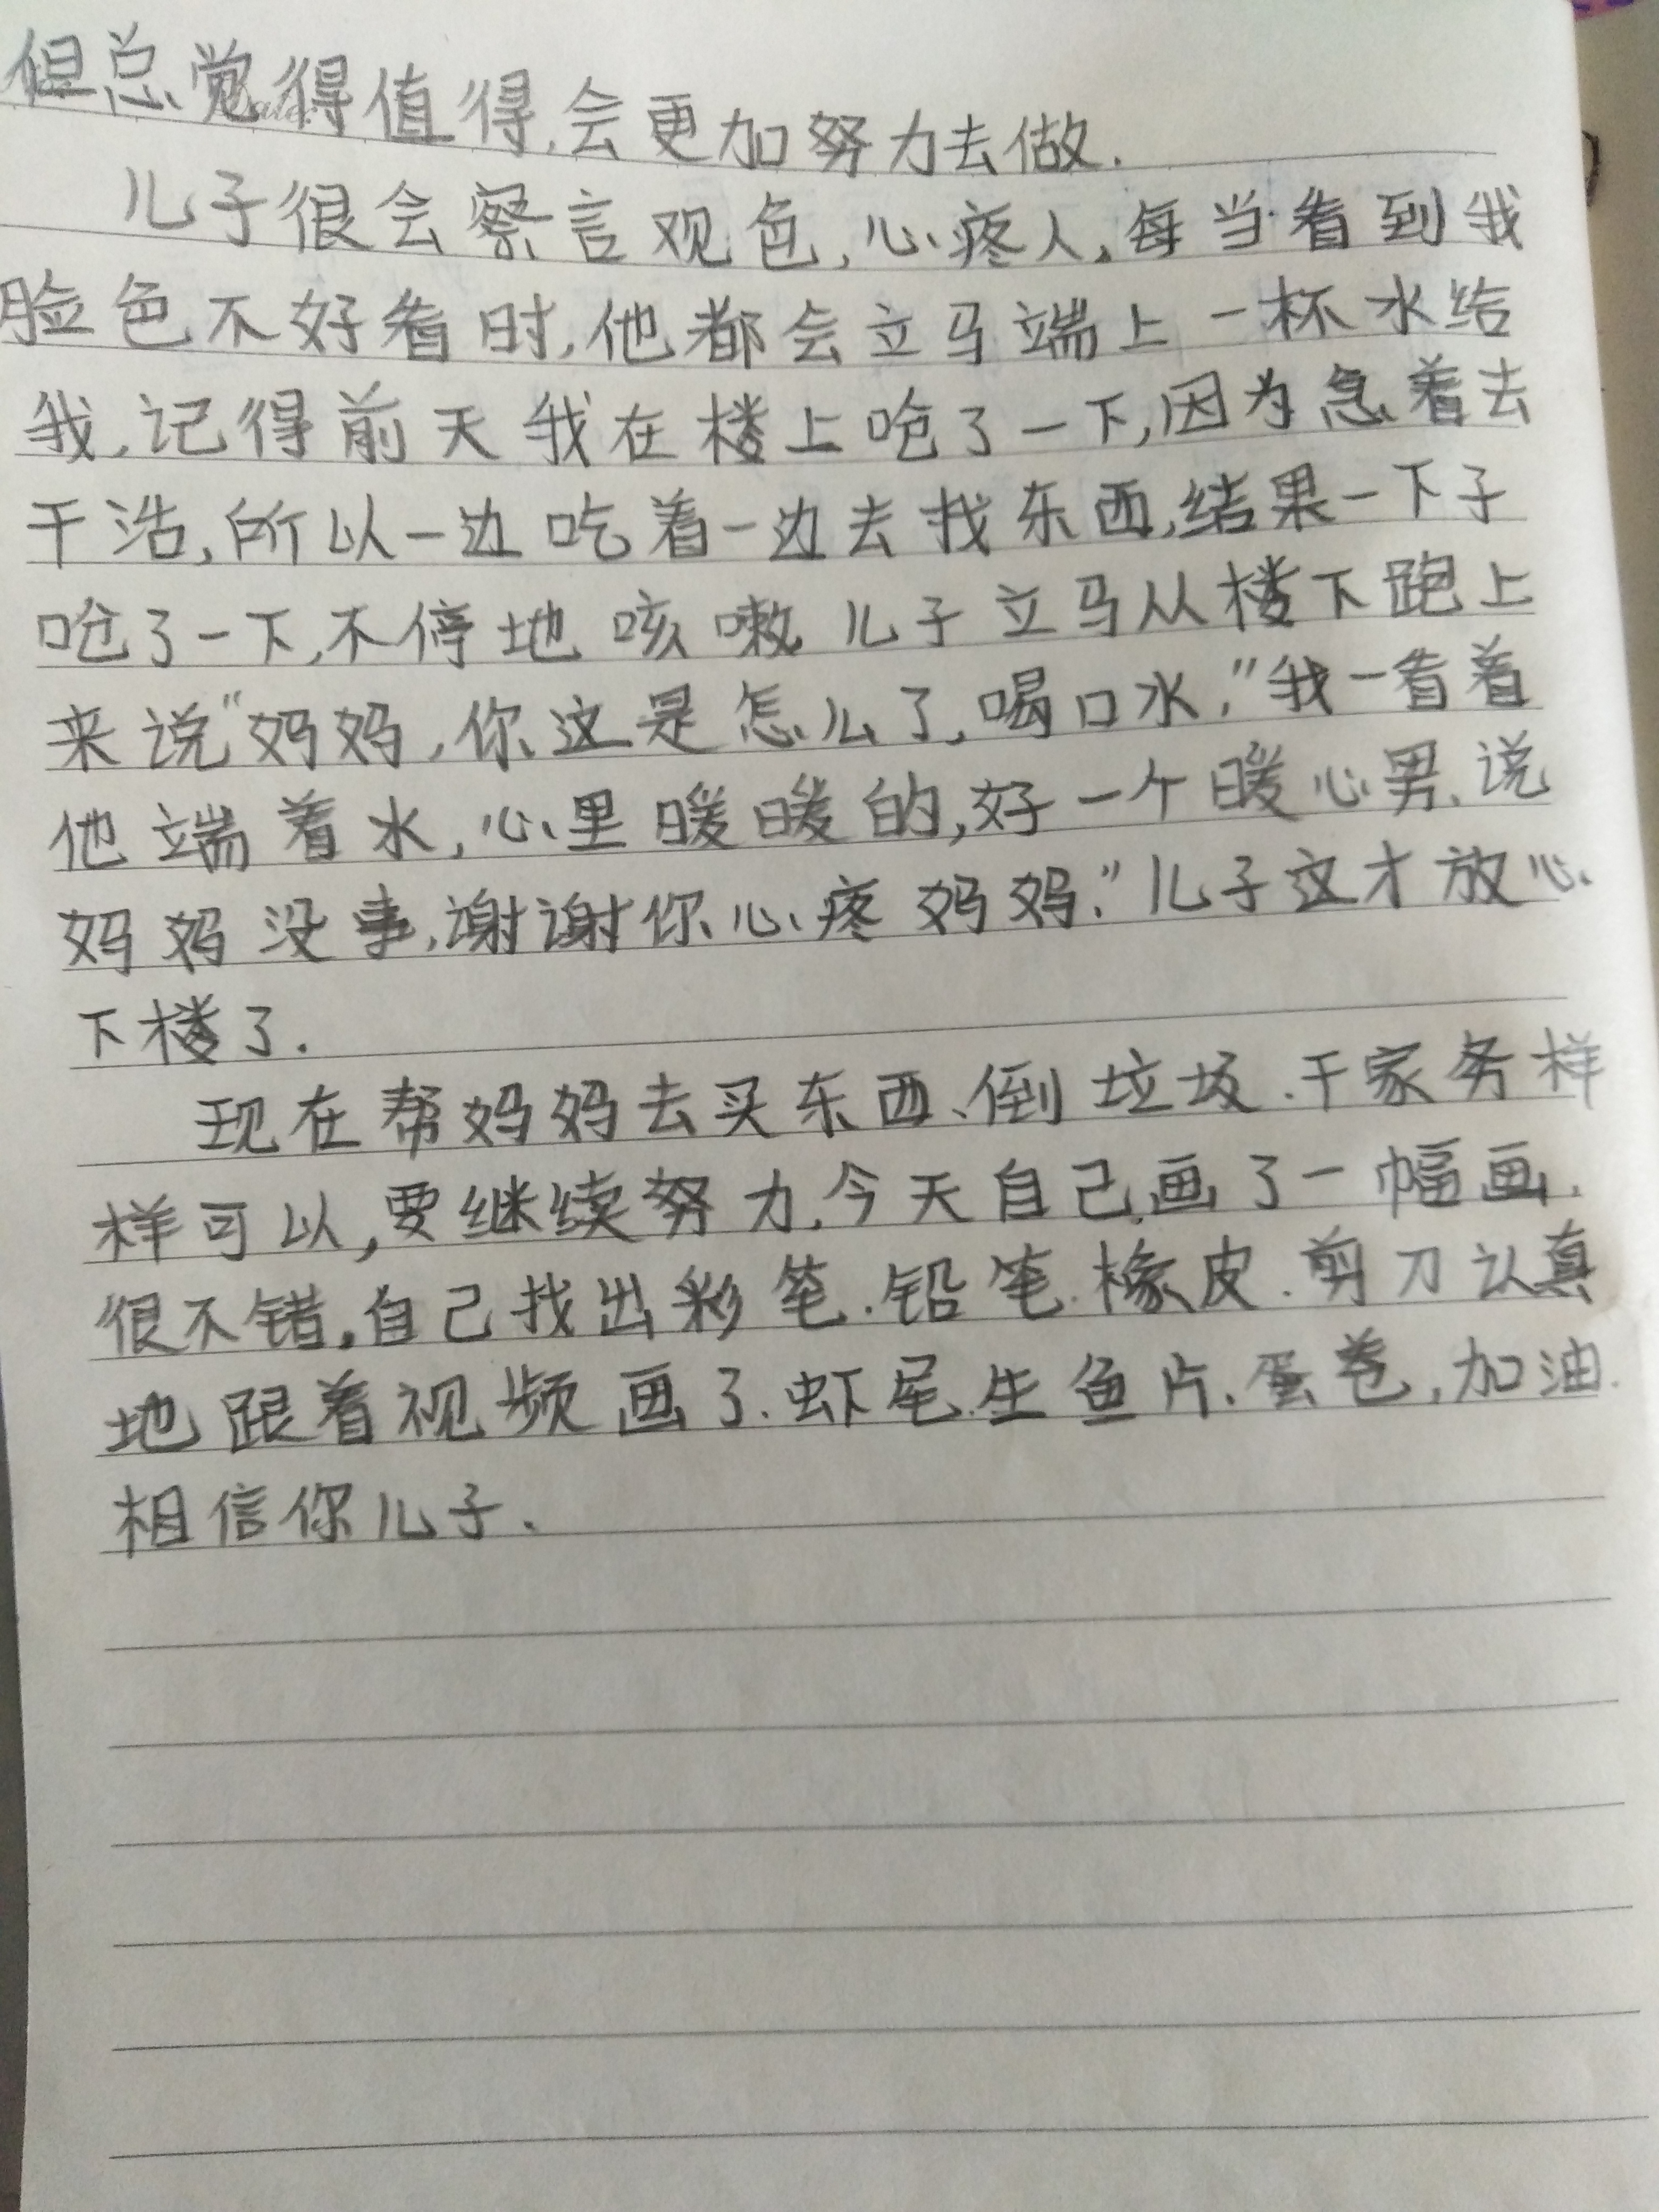 但总觉得值得.会更加努力去做.
儿子很会察言观色,心疼人,每当看到我
脸色不好看时,他都会立马端上一杯水给
我,记得前天我在楼上呛了一下,因为急着去
干活,所以一边吃着一边去找东西,结果一下子
呛了一下,不停地咳嗽儿子立马从楼下跑上
来说"妈妈,你这是怎么了,喝口水,"我一看着
他端着水,心里暖暖的,好一个暖心男、说
妈妈没事,谢谢你心疼妈妈."儿子这才放心
下楼了.
现在帮妈妈去买东西、倒垃圾.干家务样
样可以,要继续努力,今天自己画了一幅画.
很不错,自己找出彩笔.铅笔.橡皮.剪刀认真
地跟着视频画了.虾尾.生鱼片.蛋卷,加油.
相信你儿子.